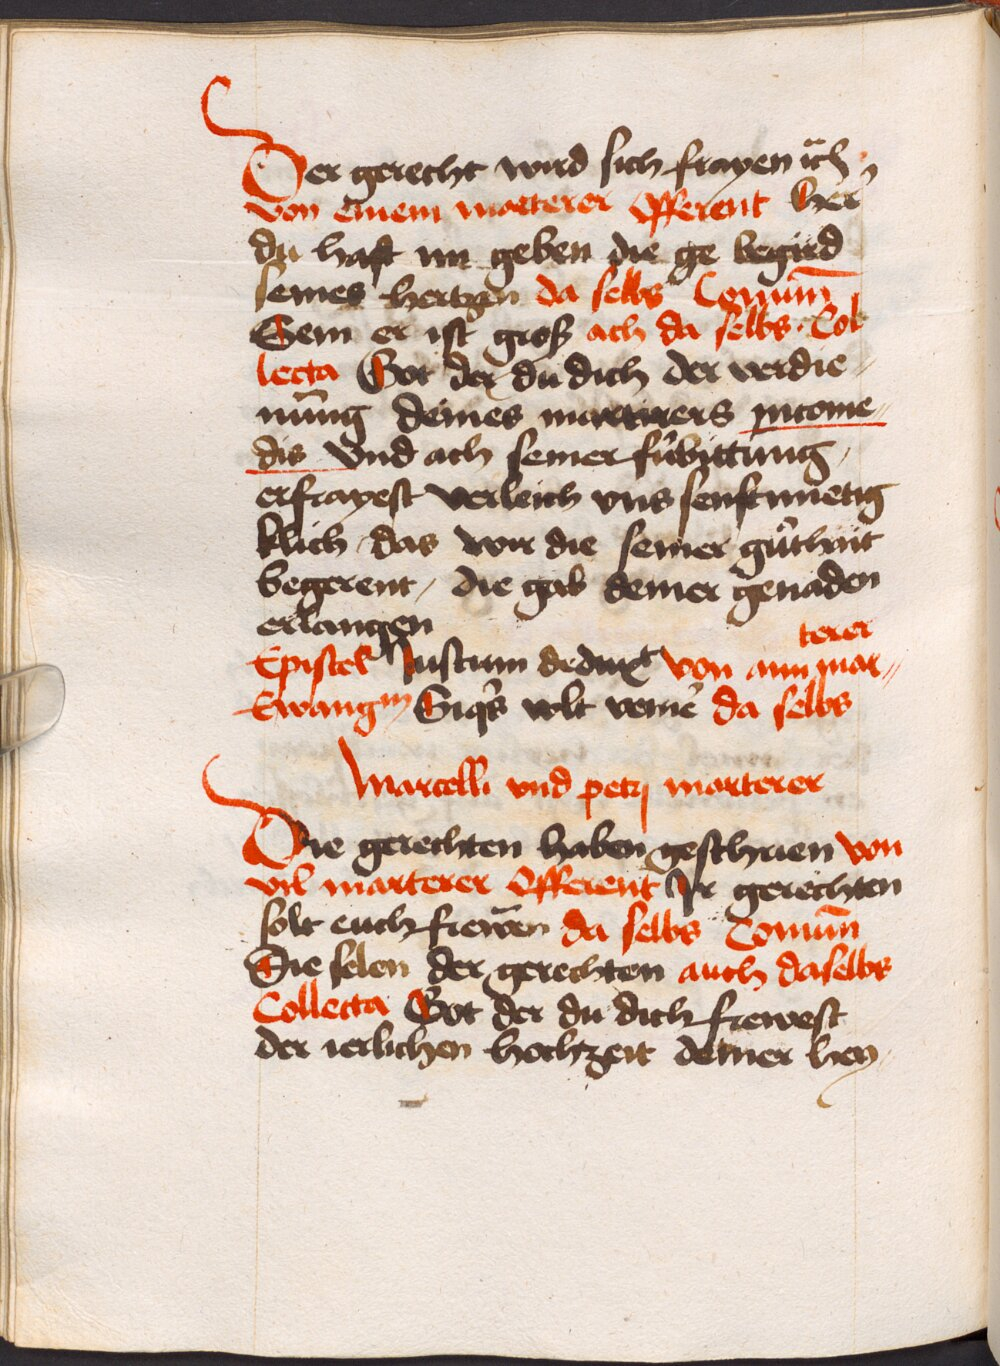 Der gerecht wird sich frayen ꝛc̃
von einem marterer Offerent Her
du hast im geben die ge begird
seines hertzen da selbs Comun̄
Sein er ist groß ach da selbs · Col
lecta Got der du dich der verdie⸗
nūng deines martirers nicome⸗
dis vnd ach seiner fürbittung /
erfrayest verleich vns senftmuetig
klich / das wir die seiner gůthait
begerent / die gab deiner genaden
erlangen
terer
Epistel Justum deduxᵗ von aim mar⸗
Ewangᵐ Siqͥs vlt venire da selbs
Marcelli vnd petrj marterer
Die gerechten haben geschrien von
vil marterer Offerent Ir gerechten
solt euch frewen da selbs Comun̄
Die selen der gerechten auch daselbs
Collecta Got der du dich frewest
der ierlichen hochzeit deiner hey